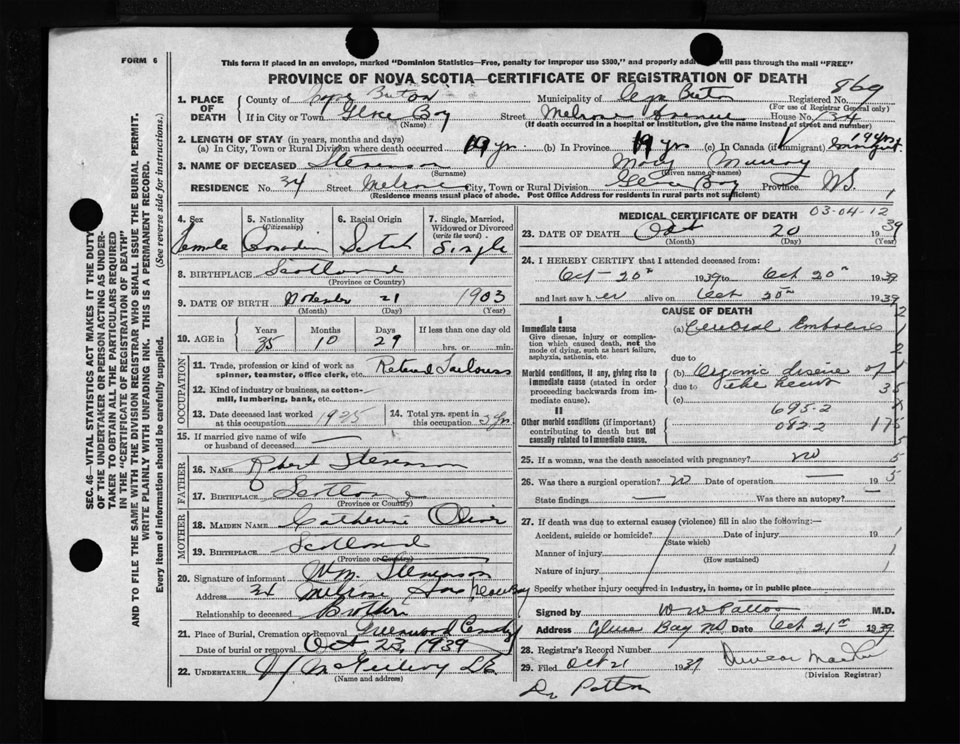 FORM 6
This form if placed in an envelope, marked "Dominion Statistics—Free, penalty for improper use $300," and properly addressed will pass through the mail "FREE"
PROVINCE OF NOVA SCOTIA—CERTIFICATE OF REGISTRATION OF DEATH
869
1. PLACE OF DEATH County of Cape Breton Municipality of Cape Breton Registered No.
(For use of Registrar General only)
If in City or Town Glace Bay Street Melrose Avenue House No. 34
(Name) (If death occurred in a hospital or institution, give the name instead of street and number)
2. LENGTH OF STAY (in years, months and days)
(a) In City, Town or Rural Division where death occurred 19 yrs (b) In Province 19 yrs (c) In Canada (if immigrant) 19 yrs Immigrant
3. NAME OF DECEASED Stevenson Mary Murray
(Surname) (Given name or names)
RESIDENCE No. 34 Street Melrose City, Town or Rural Division Glace Bay Province N.S.
(Residence means usual place of abode. Post Office Address for residents in rural parts not sufficient)
4. Sex Female
5. Nationality (Citizenship) Canadian
6. Racial Origin Scotch
7. Single, Married, Widowed or Divorced (write the word) Single
8. BIRTHPLACE Scotland
(Province or Country)
9. DATE OF BIRTH November 21 1903
(Month) (Day) (Year)
10. AGE in Years Months Days If less than one day old
35 10 29 hrs. or min.
OCCUPATION
11. Trade, profession or kind of work as spinner, teamster, office clerk, etc. Retired Tailoress
12. Kind of industry or business, as cotton-mill, lumbering, bank, etc.
13. Date deceased last worked at this occupation 1925
14. Total yrs. spent in this occupation 3 yrs
15. If married give name of wife or husband of deceased —
FATHER
16. NAME Robert Stevenson
17. BIRTHPLACE Scotland
(Province or Country)
MOTHER
18. MAIDEN NAME Catherine Oliver
19. BIRTHPLACE Scotland
(Province or Country)
20. Signature of informant Wm Stevenson
Address 34 Melrose Ave Glace Bay
Relationship to deceased Brother
21. Place of Burial, Cremation or Removal Greenwood Cemty
Date of burial or removal Oct 23, 1939
22. UNDERTAKER
(Name and address)
MEDICAL CERTIFICATE OF DEATH 03-04-12
23. DATE OF DEATH Oct 20 1939
(Month) (Day) (Year)
24. I HEREBY CERTIFY that I attended deceased from:
Oct-20th 1939 to Oct 20th 1939
and last saw her alive on Oct 20th 1939
CAUSE OF DEATH
I
Immediate cause (a) Cerebral Embolus
Give disease, injury or complication which caused death, not the mode of dying, such as heart failure, asphyxia, asthenia, etc.
due to
Morbid conditions, if any, giving rise to immediate cause (stated in order proceeding backwards from immediate cause).
(b) Organic disease of
due to the heart
(c)
695-2
082-2
II
Other morbid conditions (if important) contributing to death but not causally related to immediate cause.
25. If a woman, was the death associated with pregnancy? No
26. Was there a surgical operation? No Date of operation — 193
State findings — Was there an autopsy? —
27. If death was due to external causes (violence) fill in also the following:—
Accident, suicide or homicide? Date of injury 19
(State which)
Manner of injury
(How sustained)
Nature of injury
Specify whether injury occurred in industry, in home, or in public place
Signed by W W Patton M.D.
Address Glace Bay NS Date Oct 21st 1939
28. Registrar's Record Number
29. Filed Oct 21 1939
(Division Registrar)
Dr Patton
SEC. 46—VITAL STATISTICS ACT MAKES IT THE DUTY OF THE UNDERTAKER OR PERSON ACTING AS UNDERTAKER TO OBTAIN ALL THE PARTICULARS REQUIRED IN THE "CERTIFICATE OF REGISTRATION OF DEATH" AND TO FILE THE SAME WITH THE DIVISION REGISTRAR WHO SHALL ISSUE THE BURIAL PERMIT.
WRITE PLAINLY WITH UNFADING INK. THIS IS A PERMANENT RECORD.
Every item of information should be carefully supplied. (See reverse side for instructions.)